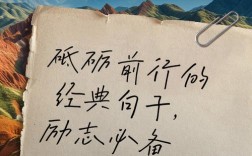 砥砺前行的
经典句子,
励志必备